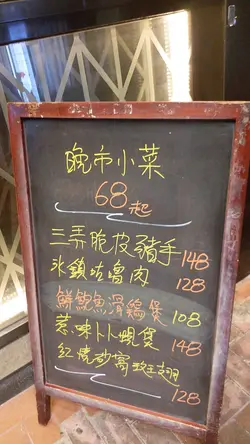 晚市小菜
68起
三弄脆皮豬手148
冰鎮咕嚕肉128
鮮鮑魚滑鷄煲108
惹味卜卜蜆煲148
紅燒砂窩斑翅128